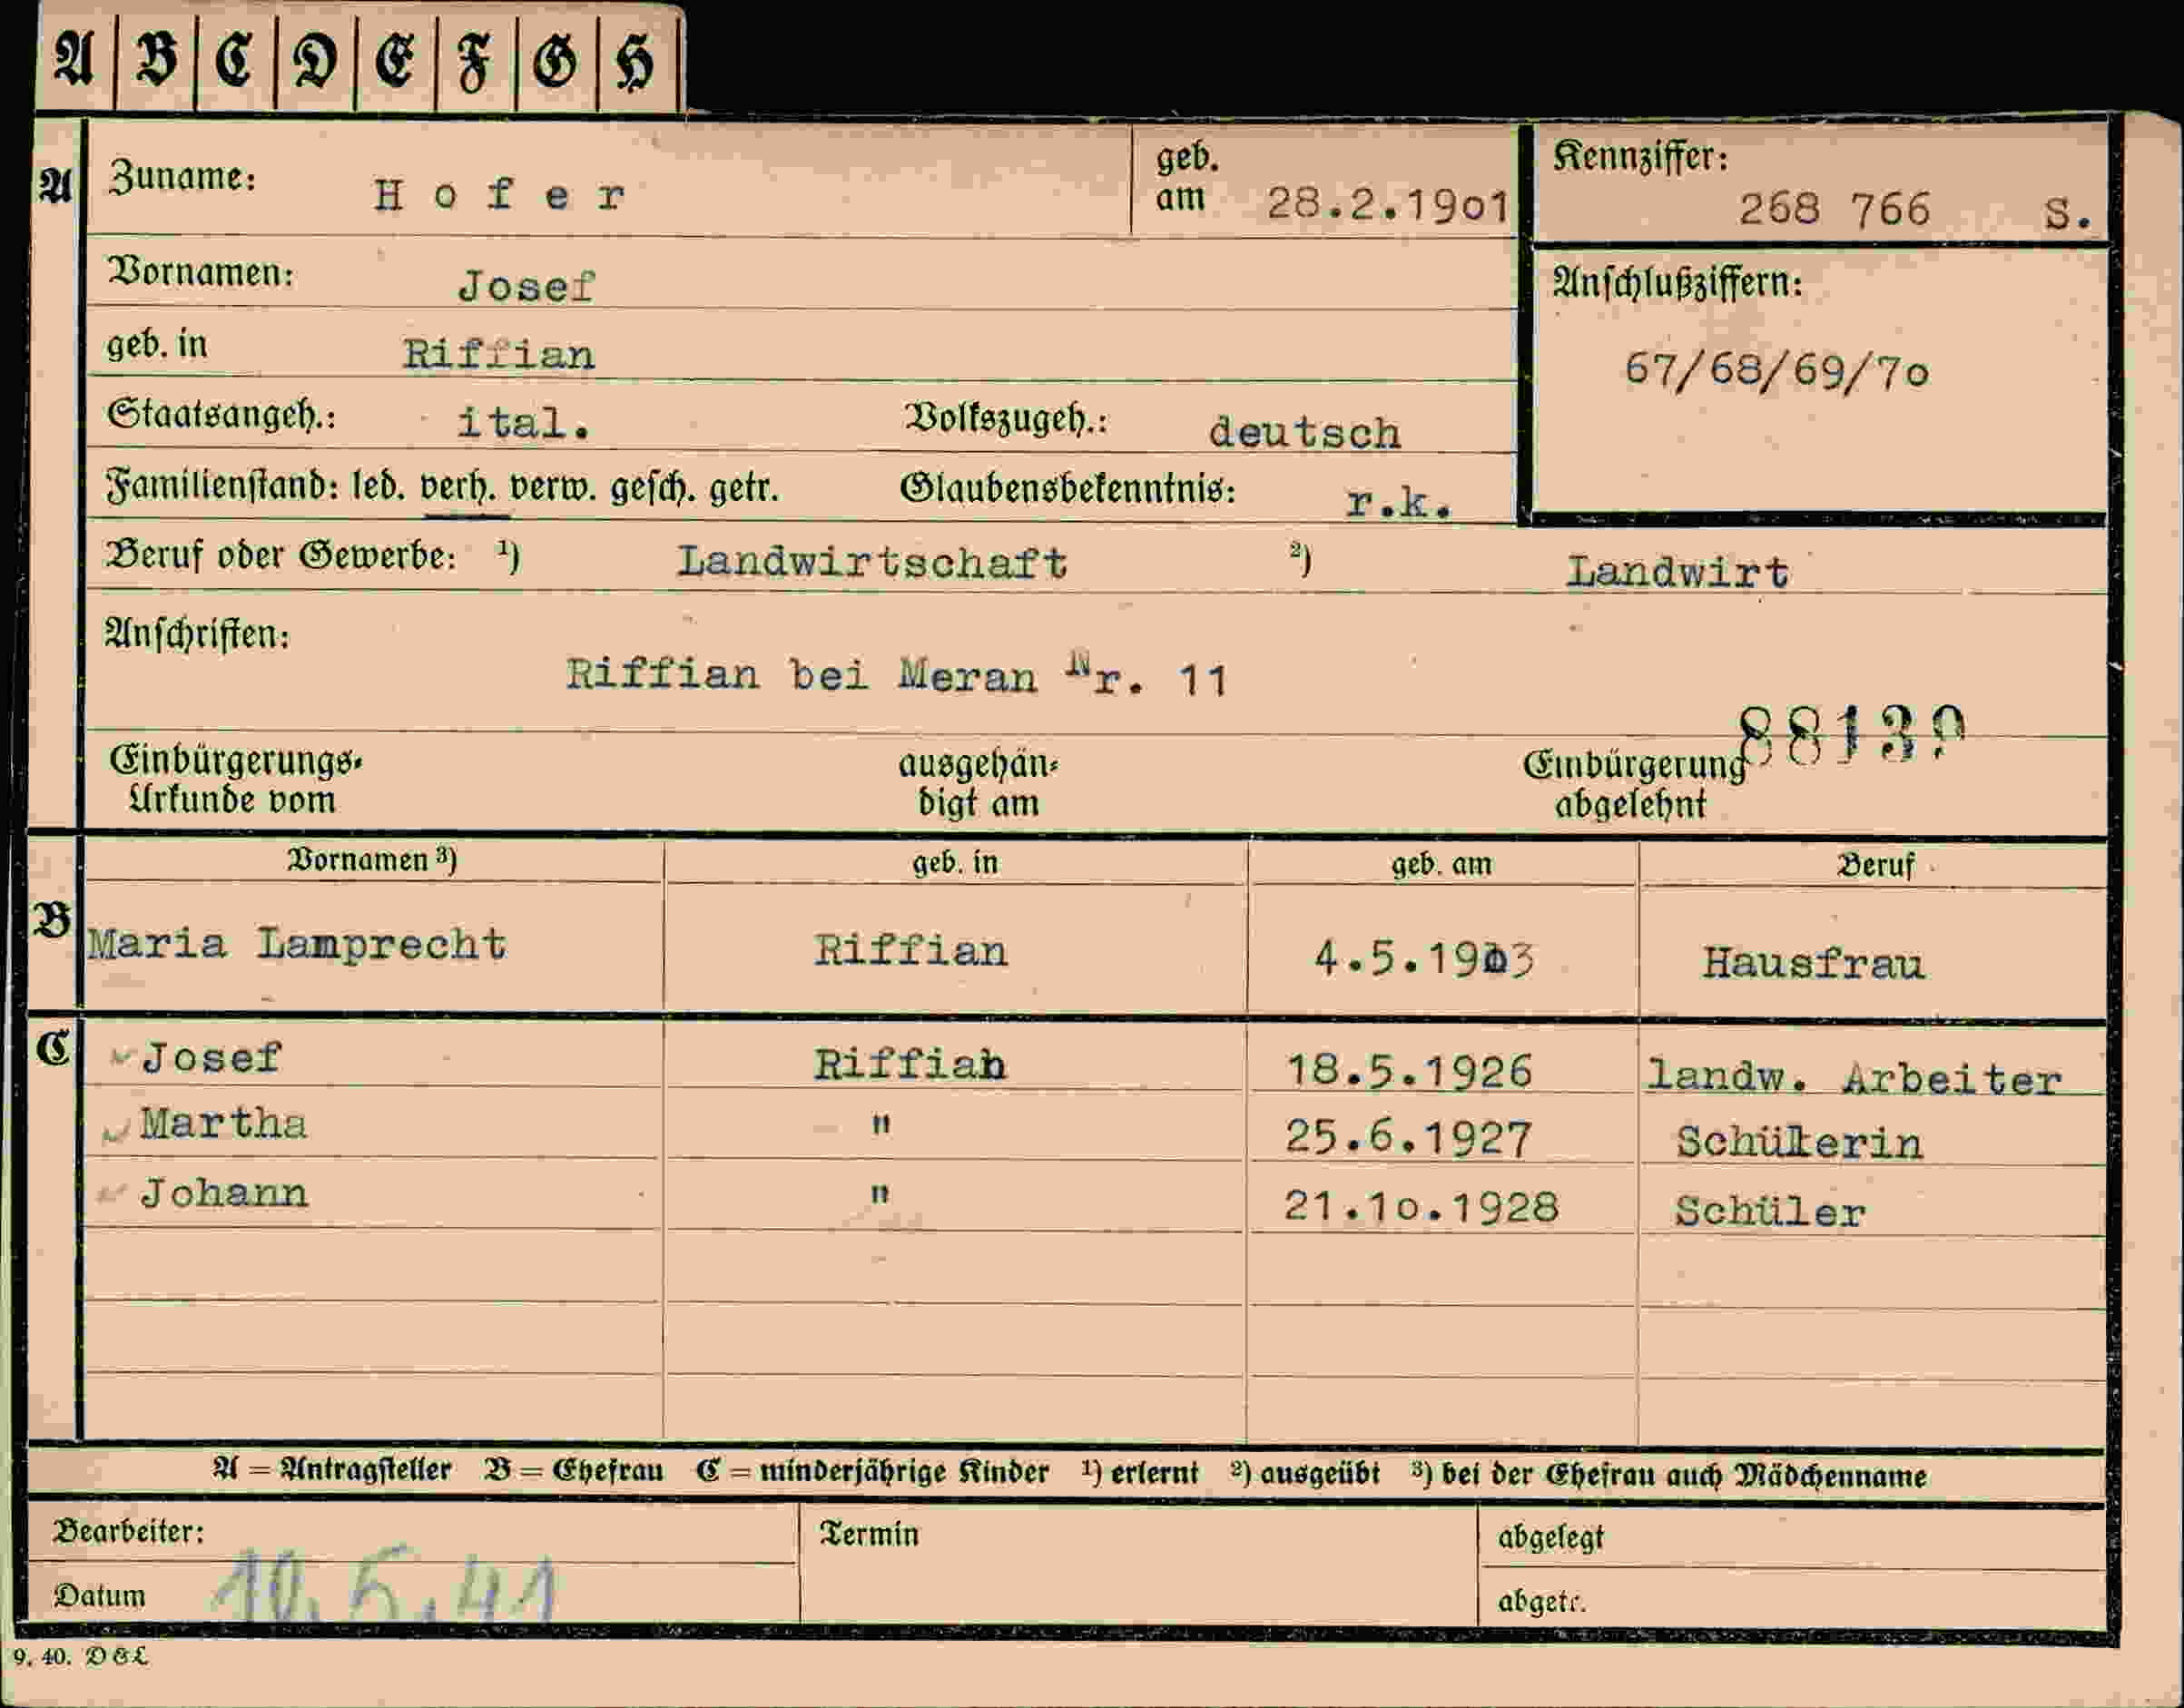 A B C D E F G H
A Zuname: Hofer geb. am 28.2.19o1 Kennziffer: 268 766 S.
Vornamen: Josef Anschlußziffern:
geb. in Riffian 67/68/69/7o
Staatsangeh.: ital. Volkszugeh.: deutsch
Familienstand: led. verh. verw. gesch. getr. Glaubensbekenntnis: r.k.
Beruf oder Gewerbe: ¹) Landwirtschaft ²) Landwirt
Anschriften:
Riffian bei Meran Nr. 11
Einbürgerungs- ausgehän- Einbürgerung
Urkunde vom digt am abgelehnt
Vornamen ³) geb. in geb. am Beruf
B Maria Lamprecht Riffian 4.5.1903 Hausfrau
C Josef Riffian 18.5.1926 landw. Arbeiter
Martha " 25.6.1927 Schülerin
Johann " 21.1o.1928 Schüler
A = Antragsteller B = Ehefrau C = minderjährige Kinder ¹) erlernt ²) ausgeübt ³) bei der Ehefrau auch Mädchenname
Bearbeiter: Termin abgelegt
Datum 10.5.41 abgetr.
9. 40. D & L